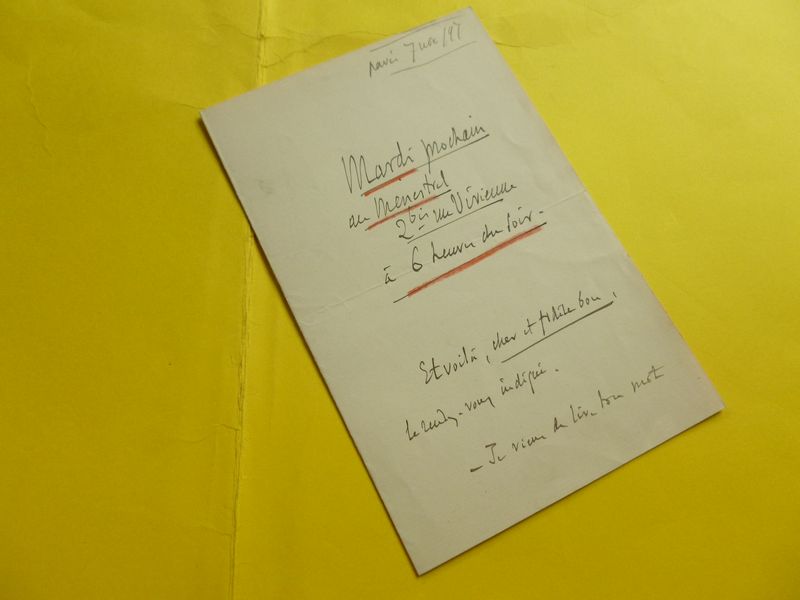 Paris 7 nov/97
Mardi prochain
au Ménestrel
2bis rue Vivienne
à 6 heures du soir -
Et voilà, cher et fidèle bon,
le rendez-vous indiqué.
- Je viens de lire ton mot